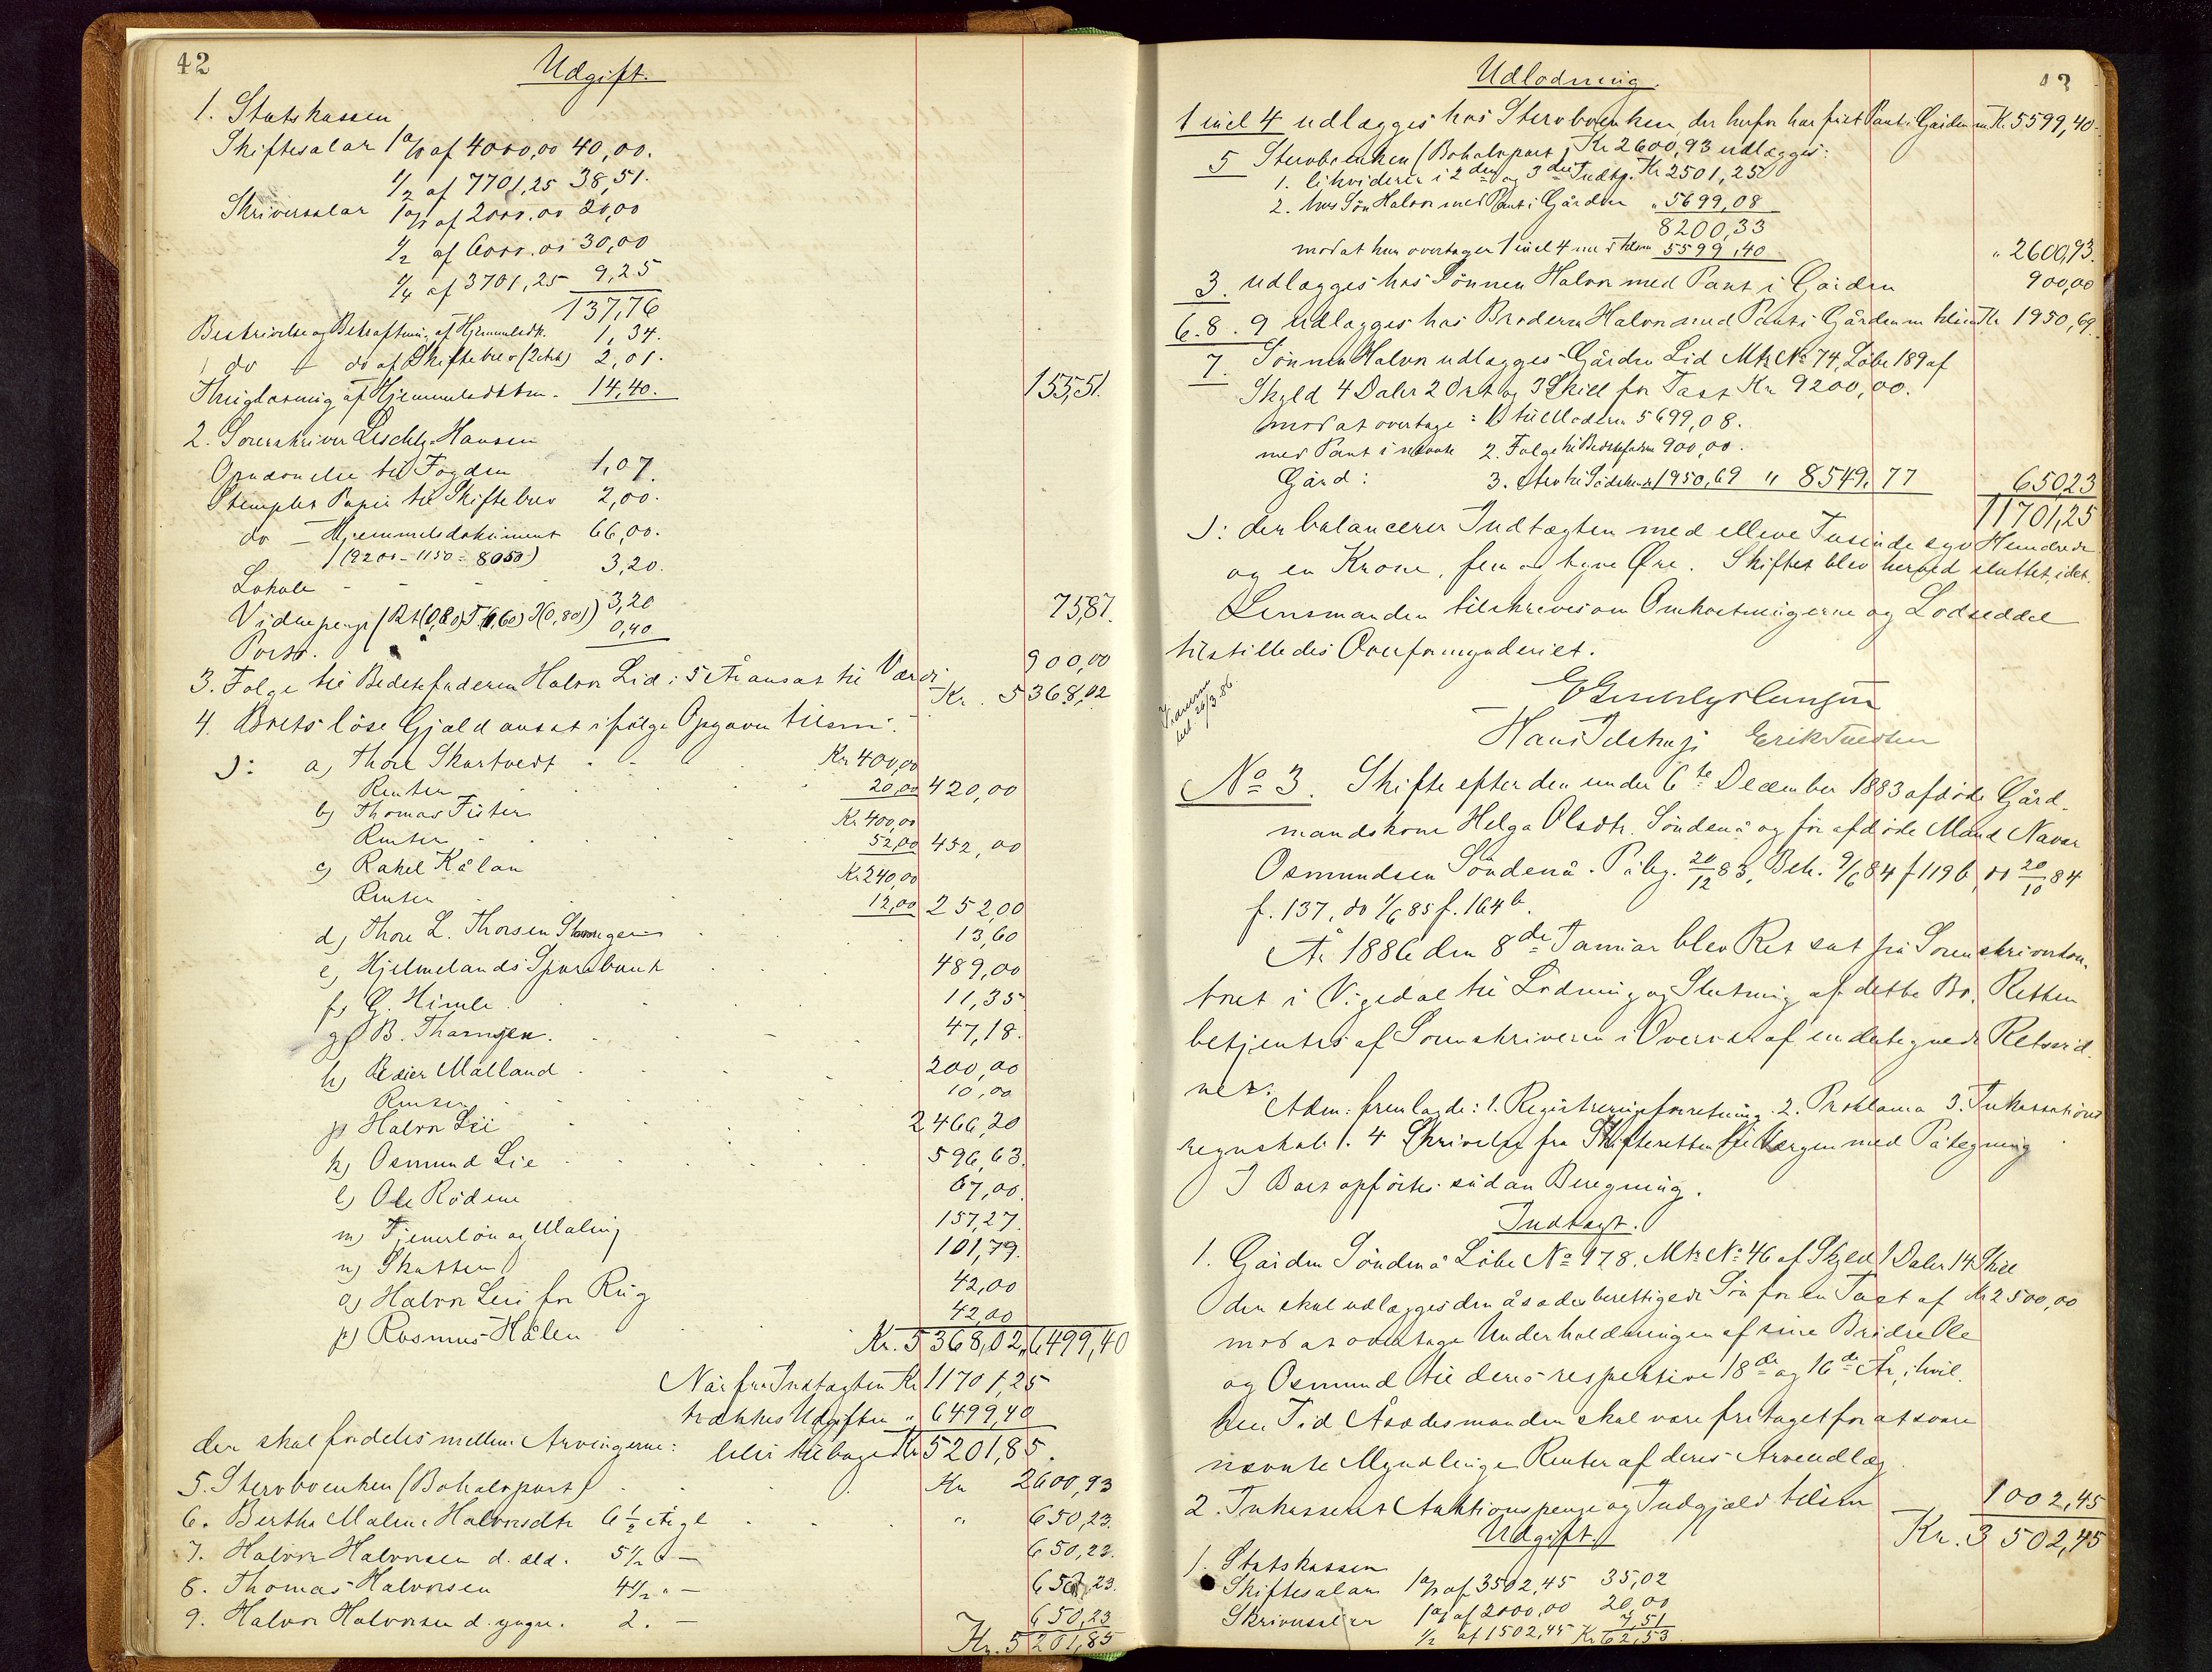 42
Udgift.
1. Statskassen
Skiftesalær 1% af 4000,00 40,00.
1/2 af 7701,25 38,51.
Skriversalær 1% af 2000.00 20,00
1/2 af 6000.00 30,00
1/4 af 3701,25 9,25
137,76
Beskrivelse og Bekræftning af Hjemmelsdk. 1,34.
do do af Skiftebrev (2ark) 2,01.
Thinglæsning af Hjemmelsdkm. 14,40. 155,51.
2. Sorenskriver Hansen
til Fogden 1,07.
Stemplet Papir til Skiftebrev 2,00.
do – Hjemmelsdokument 66,00.
(9200 – 1150 = 8050)
Lokale - - - 3,20.
Vidnepenge 3,20 75,87.
Porto. 0,40
3. Følge til Bedstefaderen Halvor Lid i 5 År ansat til Værdi 900,00
4. Boets løse Gjæld ansat ifølge Opgaven tilsm: Kr. 5368,02
ɔ: a, Thore Skartvedt - - Kr 400,00
Renter 20,00 420,00
b) Thomas Fister Kr 400,00
Renter 52,00 452,00
c) Rakel Kålan Kr 240,00
Renter 12,00 252,00
d, Thore L. Thorsen 13,60
e, Hjelmelands Sparebank 489,00
f, G. Himle 11,35
g, B. Thamsen. 47,18.
h, Reier Målland 200,00
Renter 10,00
j, Halvor Lii 2466,20
k, Osmund Lie 596,63.
l, Ole Rödne 67,00.
m, Tjenerløn og Maling 157,27.
n, Skatten 101,79.
o, Halvor Lii for Rug 42,00
p) Rasmus Hålen 42,00
Kr. 5368,02 6499,40
Når fra Indtægten Kr 11701,25
trækkes Udgiften „ 6499,40
bliver tilbage Kr 5201,85.
der skal fordeles mellem Arvingerne:
5. Stervboenken (Boholvpart) Kr 2600,93
6. Bertha Malene Halvorsdtr 6 1/2 År gl „ 650,23.
7. Halvor Halvorsen d. æld. 5 1/2 „ — 650,23.
8. Thomas Halvorsen 4 1/2 „ — 650,23.
9. Halvor Halvorsen d. yngre. 2. — 650,23
Kr. 5201,85
43
Udlodning.
1 incl 4 udlægges hos Stervboenken, der herfor har fået Pant i Gården m. Kr. 5599,40
5 Stervboenken (Boholvpart) Kr 2600,93 udlægges:
1. likviderer i 2den og 3die Indtg. Kr 2501,25
2. hos Søn Halvor med Pant i Gården „ 5699,08
8200,33
mod at hun overtager 1 incl 4 med tilsm 5599,40 „ 2600,93.
3. udlægges hos Sønnen Halvor med Pant i Gården 900,00
6. 8. 9 udlægges hos Broderen Halvor med Pant i Gården m tilsm Kr 1950,69.
7. Sønnen Halvor udlægges Gården Lid Mtr No 74, Løbe 189 af
Skyld 4 Daler 2 Ort og 3 Skill for Taxt Kr 9200,00.
mod at overtage: 1 til Moderen 5699,08.
med Pant i nævnte 2. Følge til Bedstefaderen 900,00.
Gård: 3. Arv til Sødskende 1950,69 „ 8549,77 650,23
11701,25
ɔ: der balancerer Indtægten med elleve Tusinde syv Hundrede
og en Krone, fem og tyve Øre. Skiftet blev herved sluttet, idet
Lensmanden tilskrives om Omkostningerne og Lodseddel
tilstilledes Overformynderiet.
Hans Jelstrup Erik Tuesten
No 3. Skifte efter den under 6te December 1883 afdøde Gård-
mandskone Helga Olsdtr. Søndenå og før afdøde Mand Navar
Osmundsen Søndenå. Påbeg. 20/12 83, Beh. 9/6 84 f 119b, do 20/10 84
f. 137, do 1/6 85 f. 164b.
År 1886 den 8de Januar blev Ret sat på Sorenskriverkon-
toret i Vigedal til Lodning og Slutning af dette Bo. Retten
betjentes af Sorenskriveren i Overvær af undertegnede Retsvid-
ner.
Adm: fremlagde: 1. Registreringsforretning 2. Proklama 3. Inkassations
regnskab 1. 4 Skrivelse fra Skifteretten til Værgen med Påtegning
I Boet opførtes sådan Beregning.
Indtægt.
1. Gården Søndenå Løbe No 178. Mtr No 46 af Skyld 1 Daler 14 Skill
der skal udlægges den åsædesberettigede Søn for en Taxt af Kr 2500,00
mod at overtage Underholdningen af sine Brødre Ole
og Osmund til deres respektive 18de og 16de År, i hvil-
ken Tid Åsædesmanden skal være fritaget for at svare
nævnte Myndlinge Renter af deres Arveudlæg
2. Inkasseret Auktionspenge og Indgjæld tilsm 1002,45
Kr. 3502,45
Udgift.
1. Statskassen
Skiftesalær 1% af 3502,45 35,02
Skriversalær 1% af 2000,00 20,00
1/2 af 1502,45 7,51
Kr 62,53